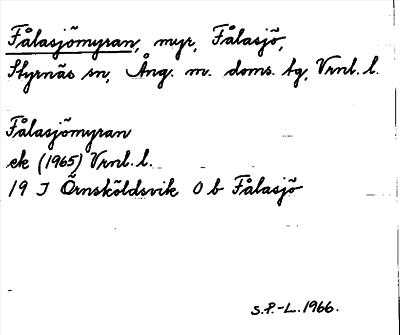 Fålasjömyran, myr, Fålasjö,
Styrnäs sn, Ång. m. doms. tg, Vrnl. l.
Fålasjömyran
ek (1965) Vrnl. l.
19 J Örnsköldsvik 0 b Fålasjö
S.P.-L. 1966.